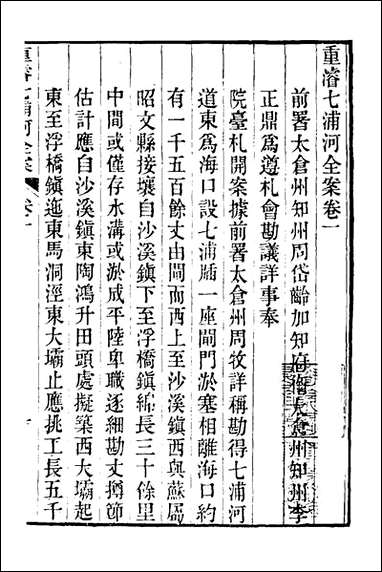 重濬七浦河全案卷一
前署太倉州知州周岱齡加知府銜太倉州知州李
正鼎為遵札會勘議詳事奉
院臺札開案據前署太倉州周牧詳稱勘得七浦河
道東為海口設七浦牐一座閘門淤塞相離海口約
有一千五百餘丈由閘而西上至沙溪鎮西與蘇屬
昭文縣接壤自沙溪鎮下至浮橋鎮綿長三十餘里
中間或僅存水溝或淤成平陸卑職逐細勘丈撙節
估計應自沙溪鎮東陶鴻升田頭處擬築西大壩起
東至浮橋鎮迤東馬洞涇東大壩止應挑工長五千
重濬七浦河全案 卷一